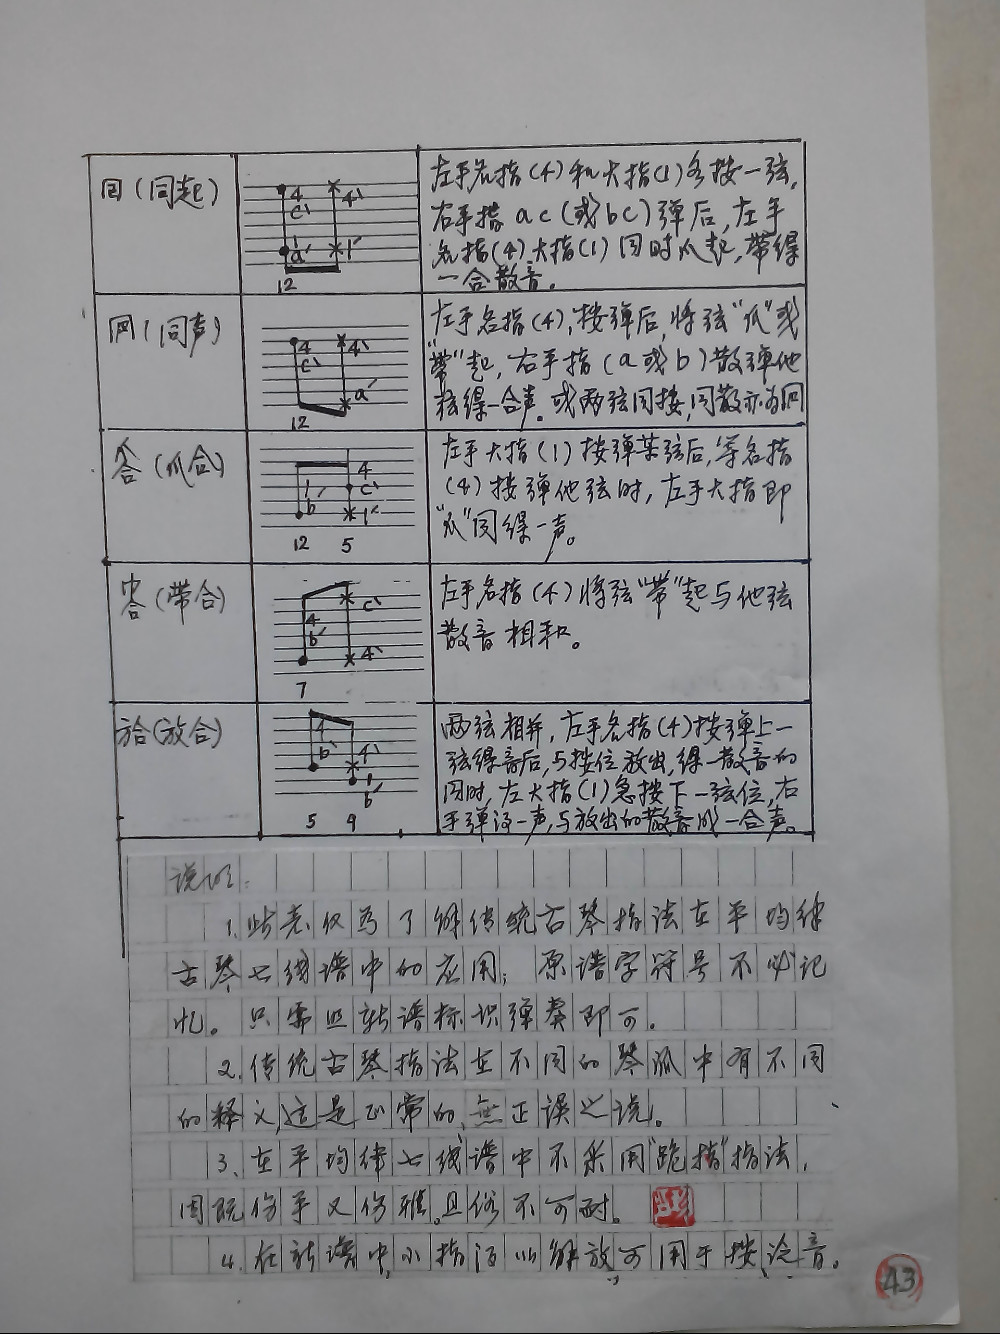 (同起)
4 4、
c、
1
a′ 1′
12
左手名指(4)和大指(1)各按一弦,
右手指ac(或bc)弹后,左手
名指(4)大指(1)同时爪起,带得
一合散音。
(同声)
4 4、
c、
a′
12
左手名指(4),按弹后,将弦"爪"或
"带"起,右手指(a或b)散弹他
弦得一合声。或两弦同按,同散亦为
(爪合)
4
1 c、
b′ 1′
12 5
左手大指(1)按弹某弦后,等名指
(4)按弹他弦时,左手大指即
"爪"同得一声。
(带合)
c、
4
b′
4、
7
左手名指(4)将弦"带"起与他弦
散音相和。
(放合)
4
b、 4、
1
b′
5 9
两弦相并,左手名指(4)按弹上一
弦得音后,与按位放出,得一散音的
同时,左大指(1)急按下一弦位,右
手弹没一声,与放出的散音成一合声。
说明:
1.此表仅为了解传统古琴指法在平均律
古琴七线谱中的应用;原谱字符号不必记
忆。只需照新谱标识弹奏即可。
2.传统古琴指法在不同的琴派中有不同
的释义,这是正常的,無正误之说。
3、在平均律七线谱中不采用"跪指"指法,
因既伤手又伤雅。且俗不可耐。
4.在新谱中,小指可以解放,可用于按、泛音。
43